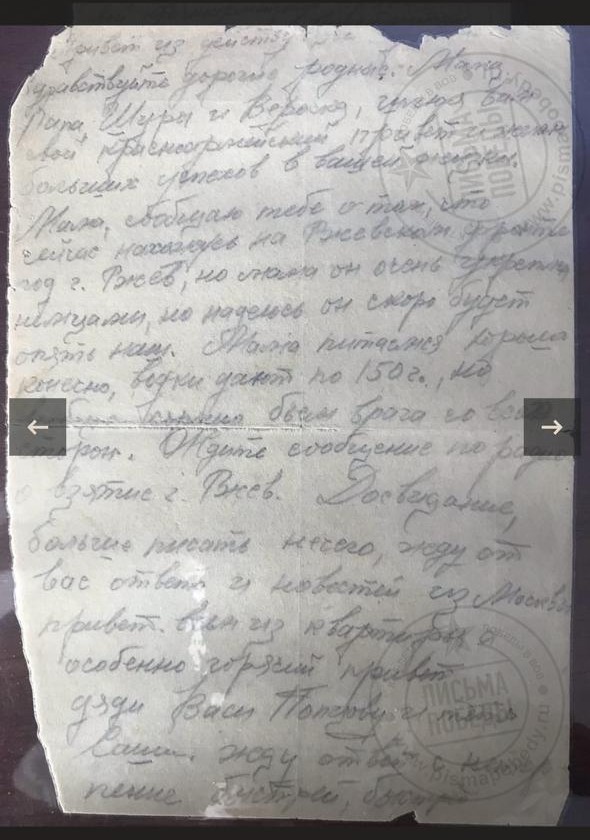 Привет из
здравствуйте дорогие родные: Мама
Папа, Шура и Вероня, шлю вам
свой красноармейский привет и желаю
больших успехов в вашей жизни.
Мама, сообщаю тебе о том, что
сейчас нахожусь на Ржевском фронте
под г. Ржев, но мама он очень укреплен
немцами, но надеюсь он скоро будет
опять наш. Мама питаемся хорошо
конесно, водки дают по 150 г., но
бьем врага со всех
сторон. Ждите сообщение по радио
о взятие г. Ржев. Досвидание,
больше писать нечего, жду от
вас ответа и новостей из Москвы
привет. всем из квартиры
особенно горячий привет
дяди Васи и тети
Саши. жду ответ с
пение быстрей, быстрей
ПИСЬМА
ПОБЕДЫ
www.pismapobedy.ru
ПИСЬМА
ПОБЕДЫ
www.pismapobedy.ru